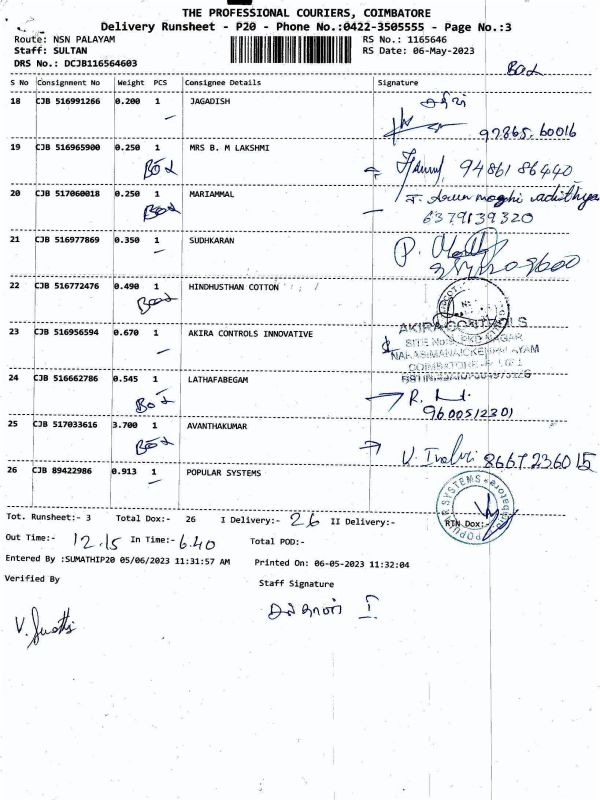 THE PROFESSIONAL COURIERS, COIMBATORE
Delivery Runsheet - P20 - Phone No.:0422-3505555 - Page No.:3
Route: NSN PALAYAM RS No.: 1165646
Staff: SULTAN RS Date: 06-May-2023
DRS No.: DCJB116564603
S No Consignment No Weight PCS Consignee Details Signature
18 CJB 516991266 0.200 1 JAGADISH
97865 60016
19 CJB 516965900 0.250 1 MRS B. M LAKSHMI
94861 86440
20 CJB 517060018 0.250 1 MARIAMMAL
6379139320
21 CJB 516977869 0.350 1 SUDHKARAN
22 CJB 516772476 0.490 1 HINDHUSTHAN COTTON
23 CJB 516956594 0.670 1 AKIRA CONTROLS INNOVATIVE
AKIRA CONTROLS
24 CJB 516662786 0.545 1 LATHAFABEGAM
9600512301
25 CJB 517033616 3.700 1 AVANTHAKUMAR
8667236015
26 CJB 89422986 0.913 1 POPULAR SYSTEMS
POPULAR SYSTEMS
Tot. Runsheet:- 3 Total Dox:- 26 I Delivery:- 26 II Delivery:- RTN Dox:-
Out Time:- 12.15 In Time:- 6.40 Total POD:-
Entered By :SUMATHIP20 05/06/2023 11:31:57 AM Printed On: 06-05-2023 11:32:04
Verified By Staff Signature